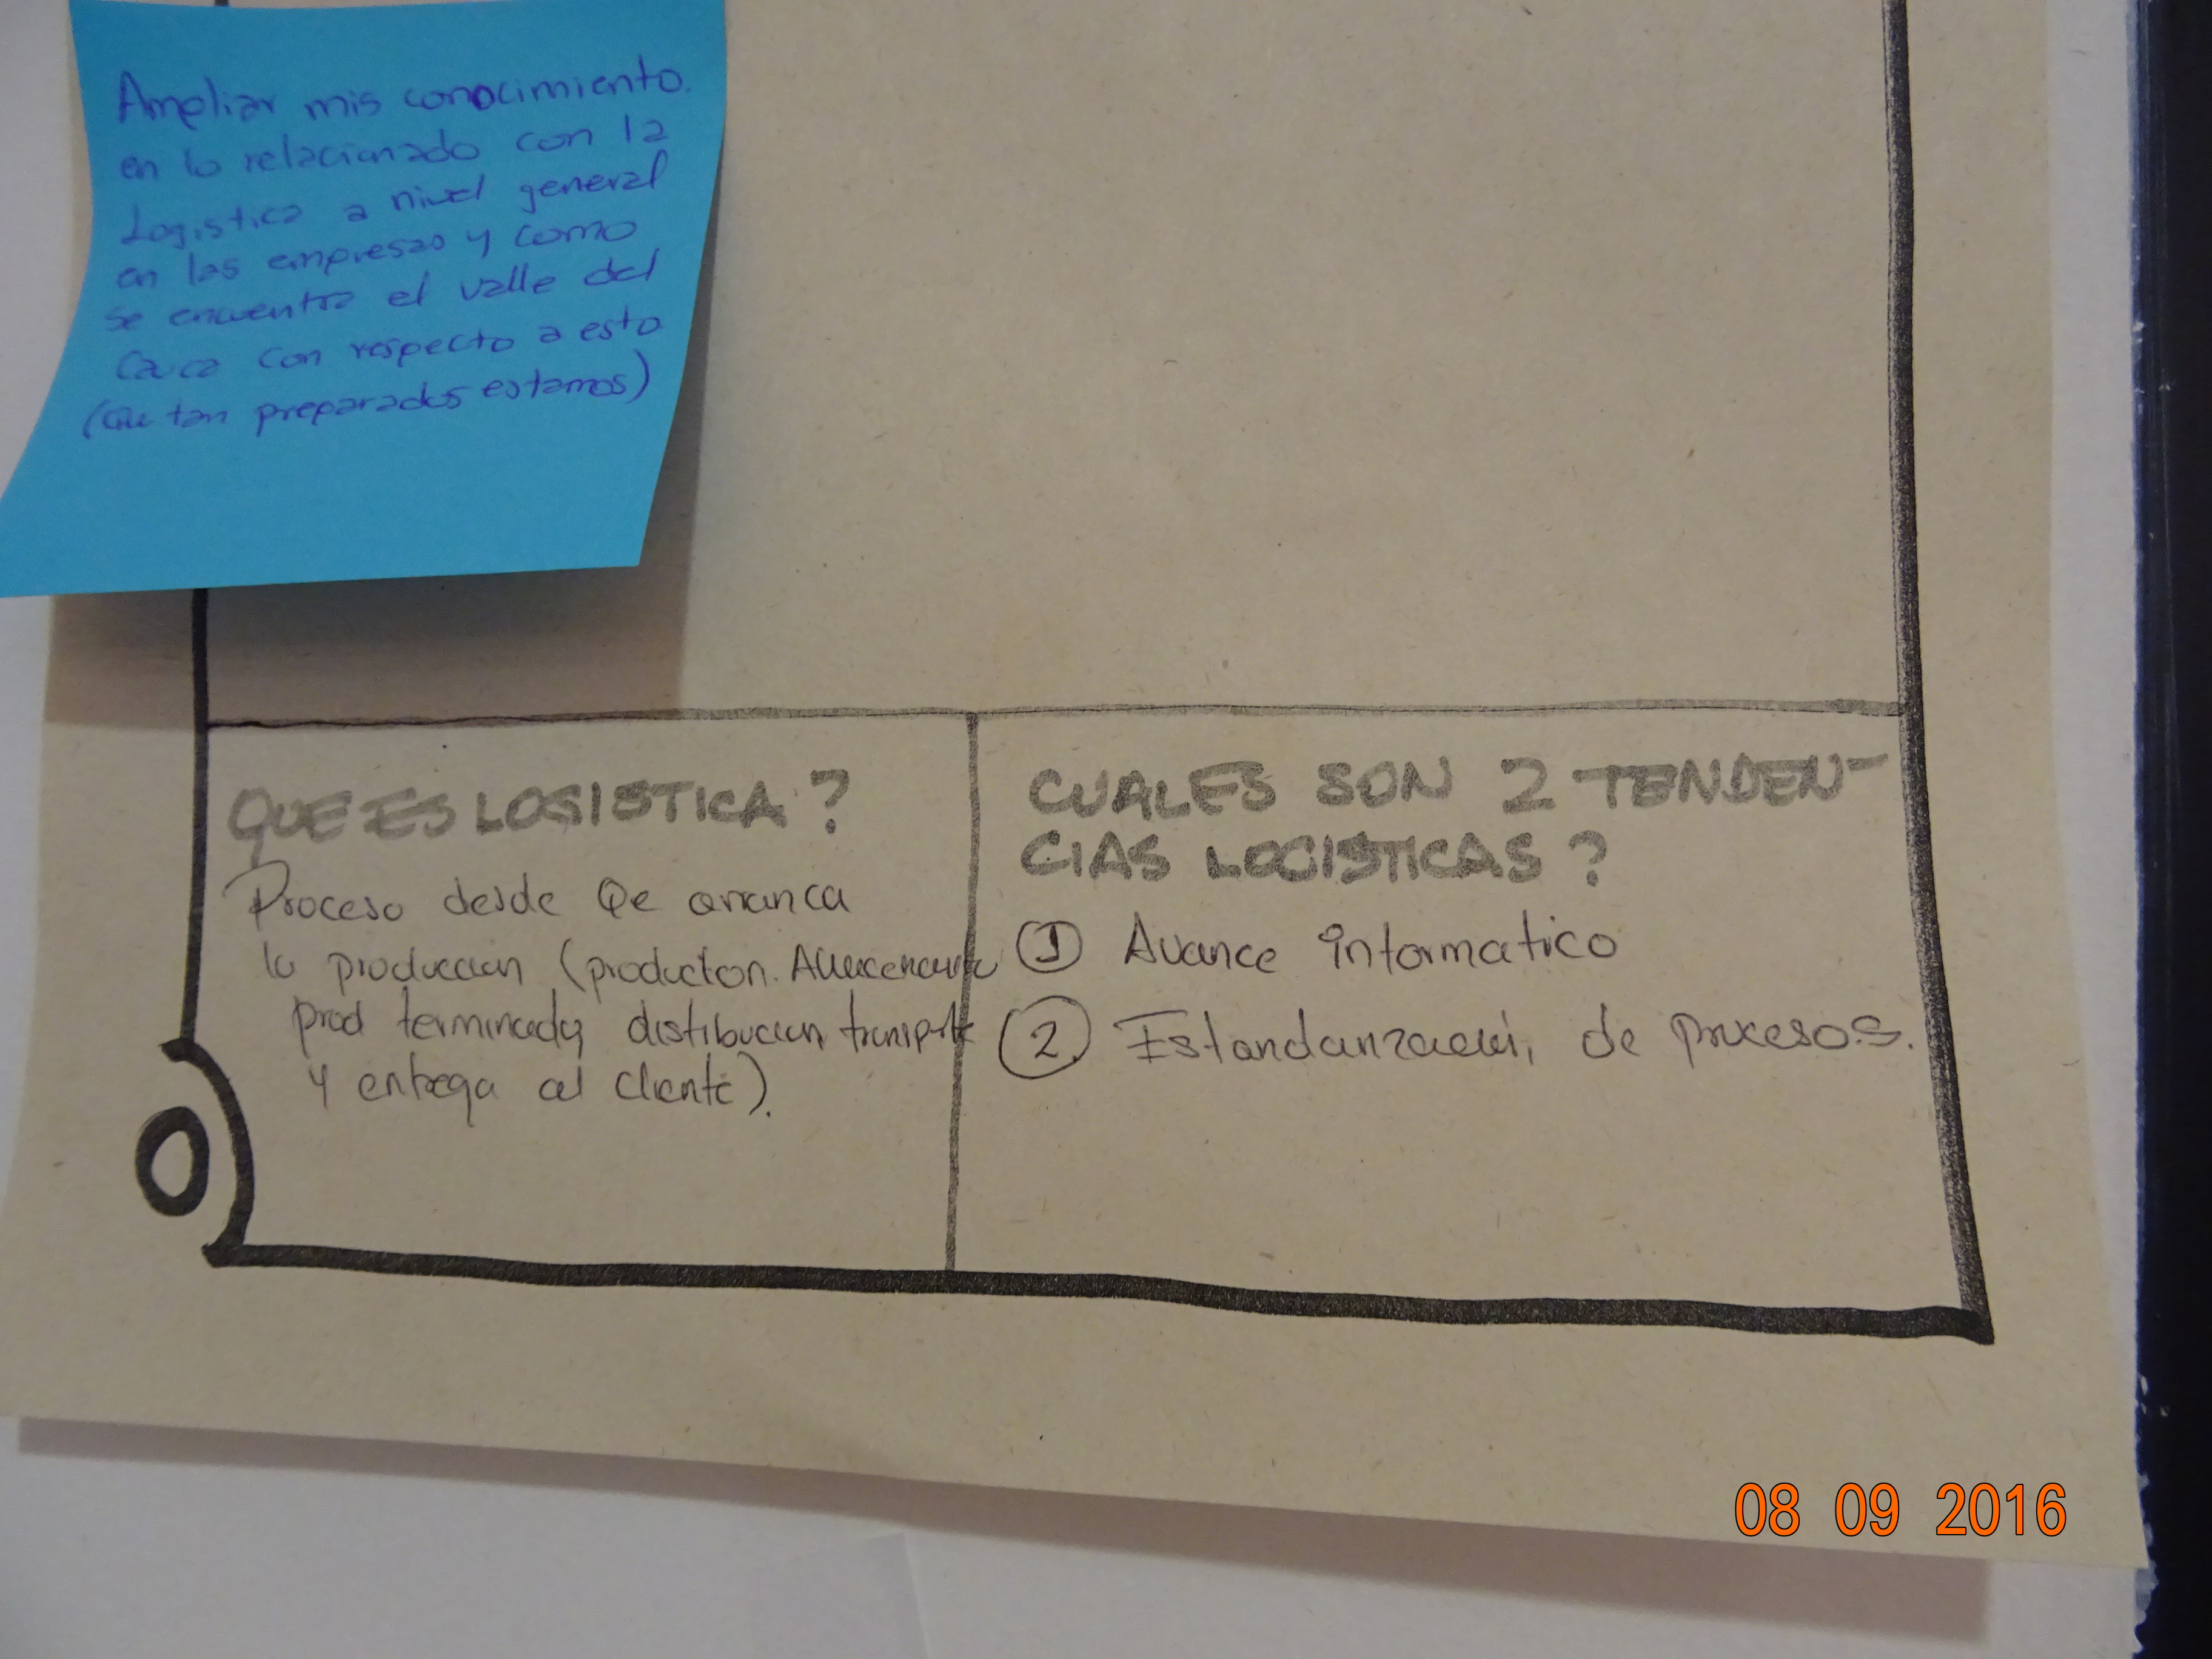 Ampliar mis conocimiento.
en lo relacionado con la
Logistica a nivel general
en las empresas y como
se encuentra el valle del
Cauca con respecto a esto
(Que tan preparados estamos)
QUE ES LOGISTICA?
Proceso desde Qe arranca
la produccion (production.
prod terminado, distibucion, transporte
y entrega al cliente).
CUALES SON 2 TENDEN-
CIAS LOGISTICAS?
1 Avance informatico
2. Estandarización, de procesos.
O
08 09 2016